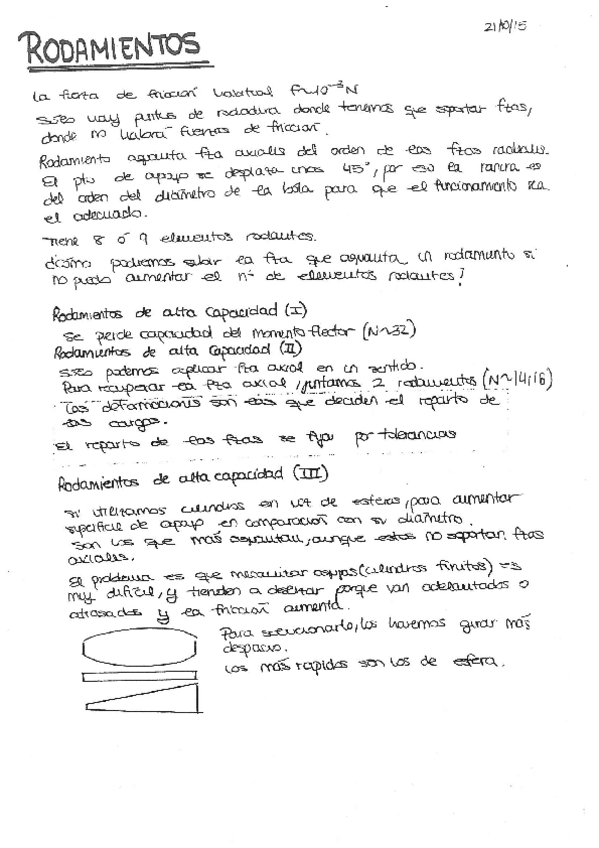 21/10/15
RODAMIENTOS
La fuerza de fricción habitual f~10⁻³N
Sólo hay puntos de rodadura donde tenemos que soportar fzas,
donde no habrá fuerzas de fricción.
Rodamiento aguanta fza axiales del orden de las fzas radiales.
El pto de apoyo se desplaza unos 45°, por eso la ranura es
del orden del diámetro de la bola para que el funcionamiento sea
el adecuado.
Tiene 8 ó 9 elementos rodantes.
¿Cómo podremos subir la fza que aguanta un rodamiento si
no puedo aumentar el nº de elementos rodantes?
Rodamientos de alta Capacidad (I)
Se pierde capacidad del momento flector (N~32)
Rodamientos de alta Capacidad (II)
Sólo podemos aplicar fza axial en un sentido.
Para recuperar la fza axial, juntamos 2 rodamientos (N~14,16)
Las deformaciones son las que deciden el reparto de
las cargas.
El reparto de las fzas se fija por tolerancias
Rodamientos de alta capacidad (III)
Si utilizamos cilindros en vez de esferas, para aumentar
superficie de apoyo en comparación con su diámetro.
Son los que más aguantan, aunque estos no soportan fzas
axiales.
El problema es que mecanizar (cilindros finitos) es
muy difícil, y tienden a desertar porque van adelantados o
atrasados y la fricción aumenta.
Para solucionarlo, los haremos girar más
despacio.
Los más rápidos son los de esfera.